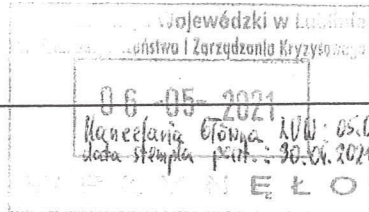 Wojewódzki w Lublinie
Zarządzania Kryzysowego
06 -05- 2021
Kancelaria Główna LUW: 05.0
data stempla poczt.: 30.04.2021
W P Ł Y N Ę Ł O